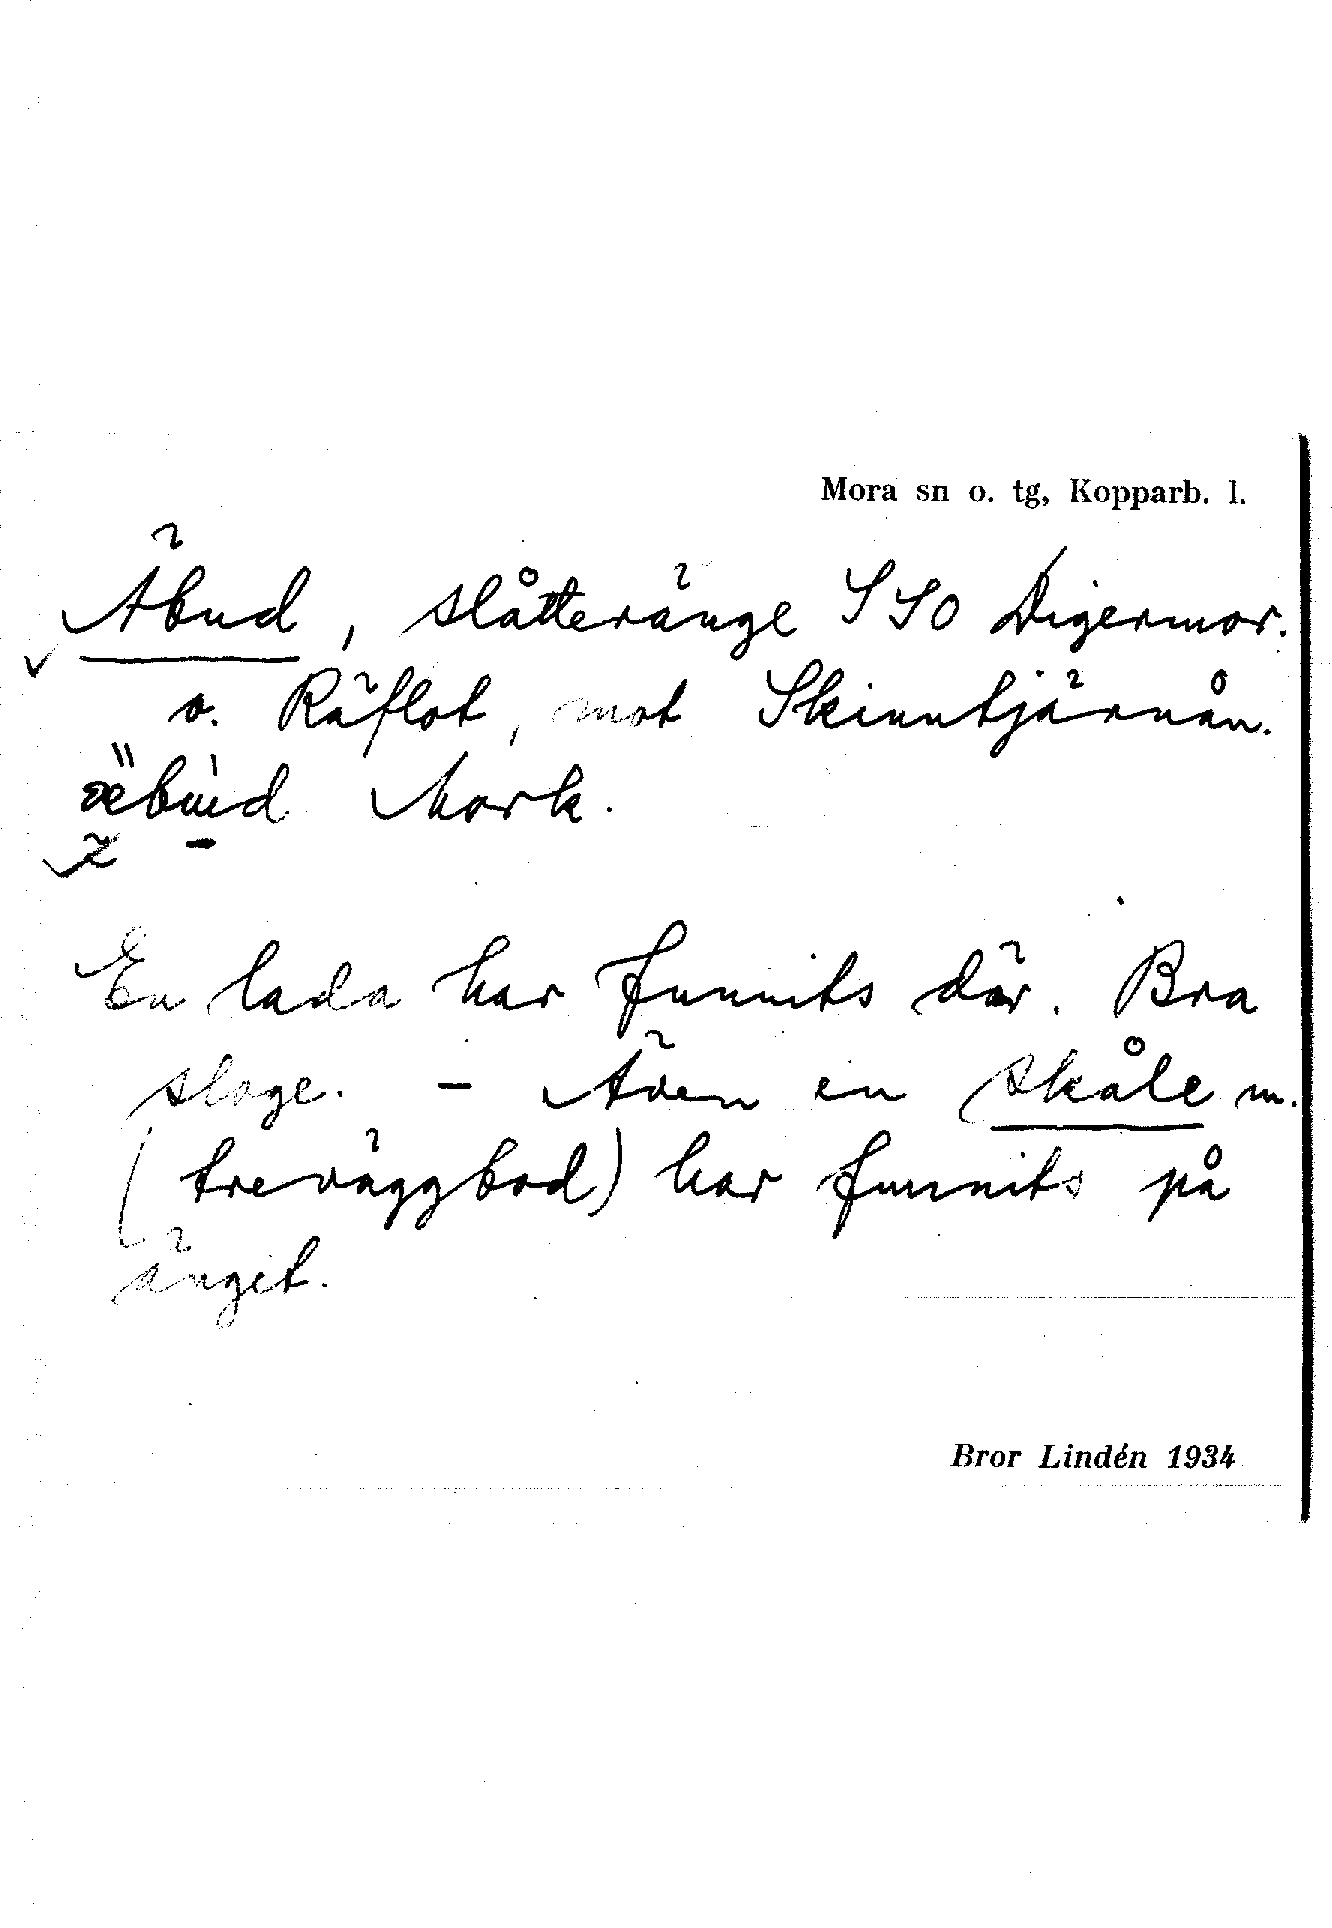 Mora sn o. tg, Kopparb. l.
Äbud, slåtteränge SSO Digermor.
o. Räflot, mot Skinntjärnån.
Mork.
En lada har funnits där. Bra
sloge. – Även en skåle m.
(treväggbod) har funnits på
änget.
Bror Lindén 1934